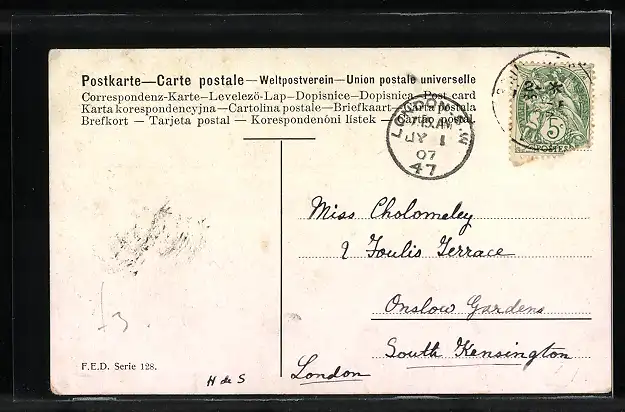 Postkarte—Carte postale—Weltpostverein—Union postale universelle
Correspondenz-Karte—Levelező-Lap—Dopisnice—Dopisnica—Post card
Karta korespondencyjna—Cartolina postale—Briefkaart—Carta postala
Brefkort — Tarjeta postal — Korespondenóni lístek — Cartão postal.
LONDON S.W
7.15 AM
JY 1
07
47
2
5
POSTES
Miss Cholomeley
2 Foulis Terrace
Onslow Gardens
South Kensington
London
£3.
F.E.D. Serie 128.
H de S